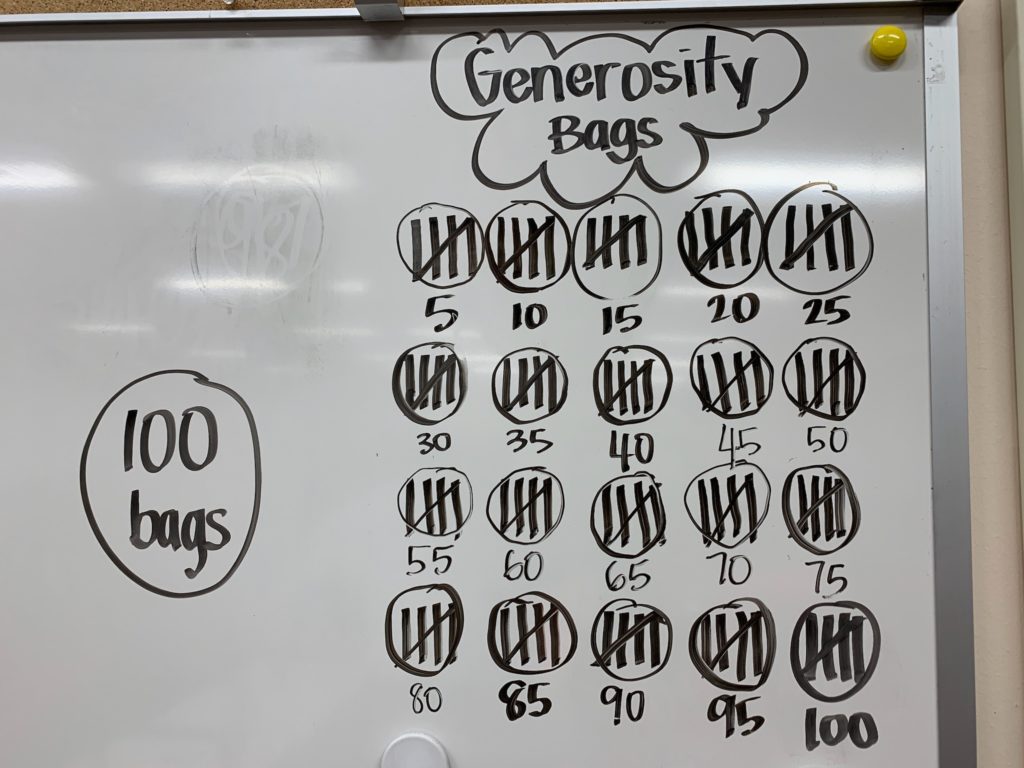 Generosity
Bags
5 10 15 20 25
30 35 40 45 50
100
bags
55 60 65 70 75
80 85 90 95 100